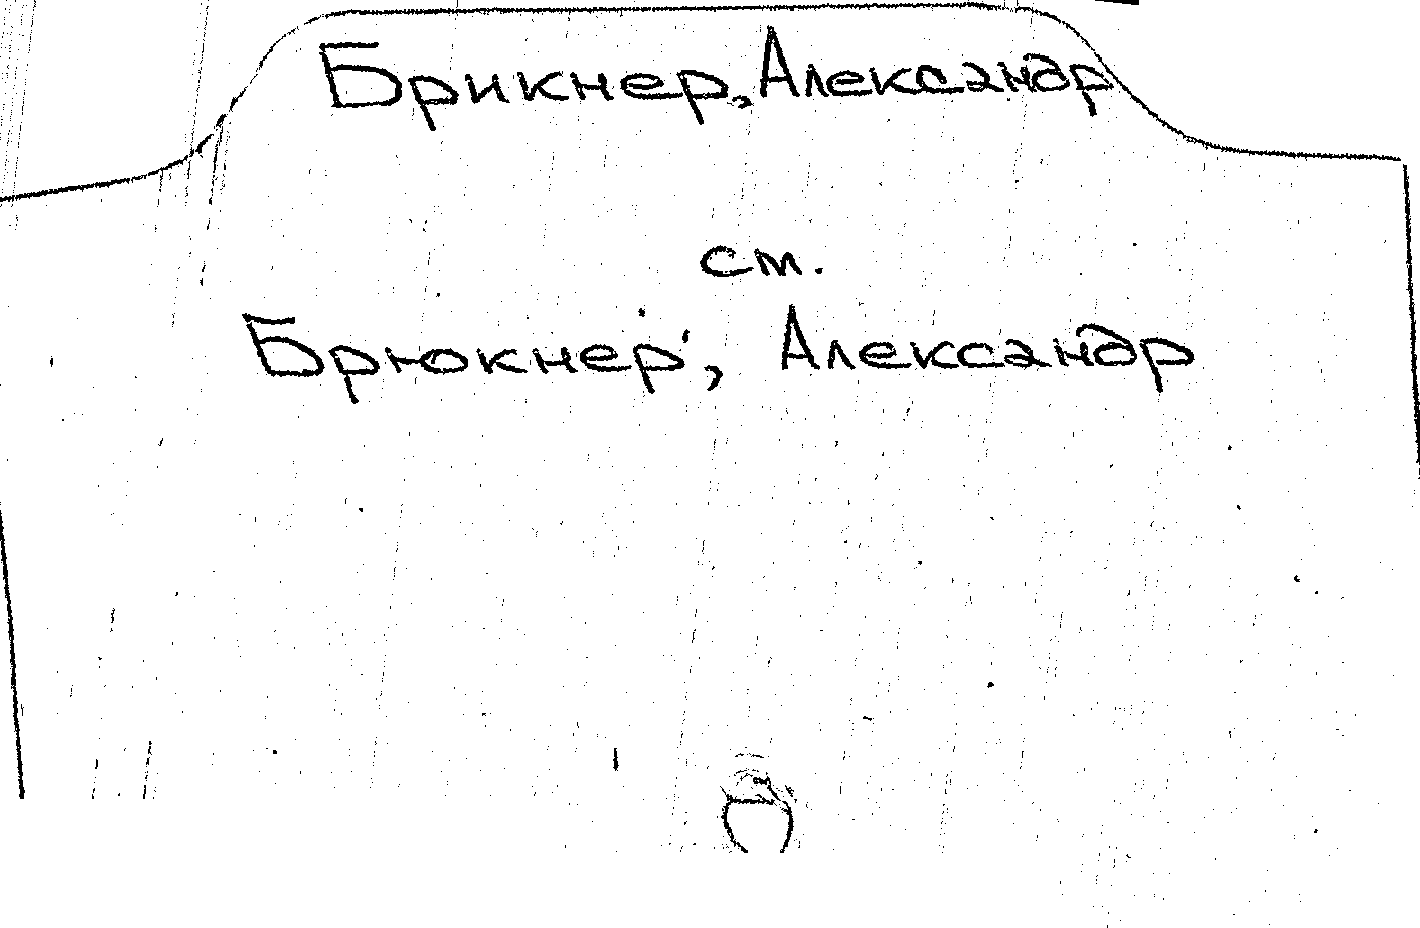 Брикнер, Александр
см.
Брюкнер, Александр